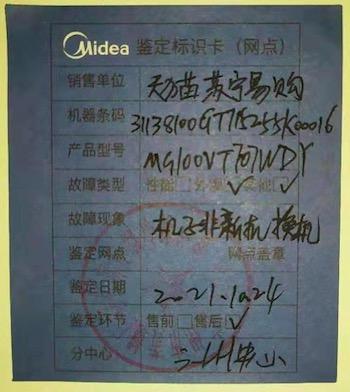 Midea 鉴定标识卡（网点）
销售单位 天猫苏宁易购
机器条码
产品型号 MG100VT707WDY
故障类型 性能□外观☑其他☑
故障现象 机子非新机换机
鉴定网点 网点盖章
鉴定日期 2021.10.24
鉴定环节 售前□售后☑
分中心